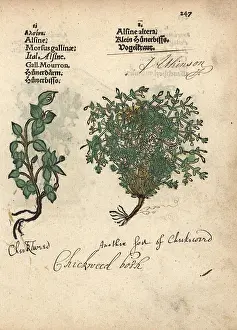 247
1.
Alsine.
Morsus gallinæ.
Ital. Alsine.
Gall. Mouron.
Hünerdärm.
Hünerbiss.
2.
Alsine altera.
Klein Hünerbiss.
Vogelkraut.
J. Atkinson
Chickweed
Another sort of Chickweed
Chickweed both